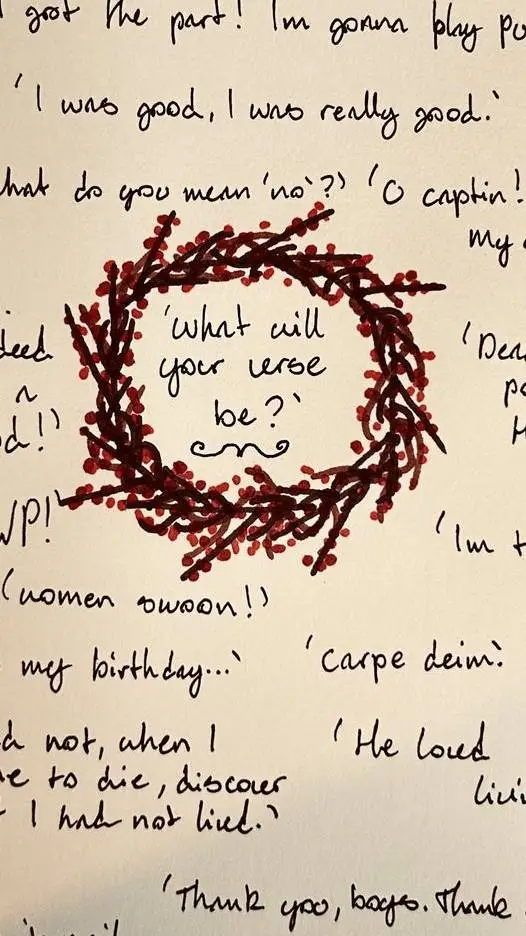 got the part! Im gonna play pu
'I was good, I was really good.'
hat do you mean 'no'?' 'O captin!
my
'What will
your verse
be?'
deed
'Dea
d!)
'Im t
(women swoon!)
my birthday...' 'Carpe deim'
d not, when I
'He loved
e to die, discover
livi
I had not lived.'
'Thank you, boys. Thank